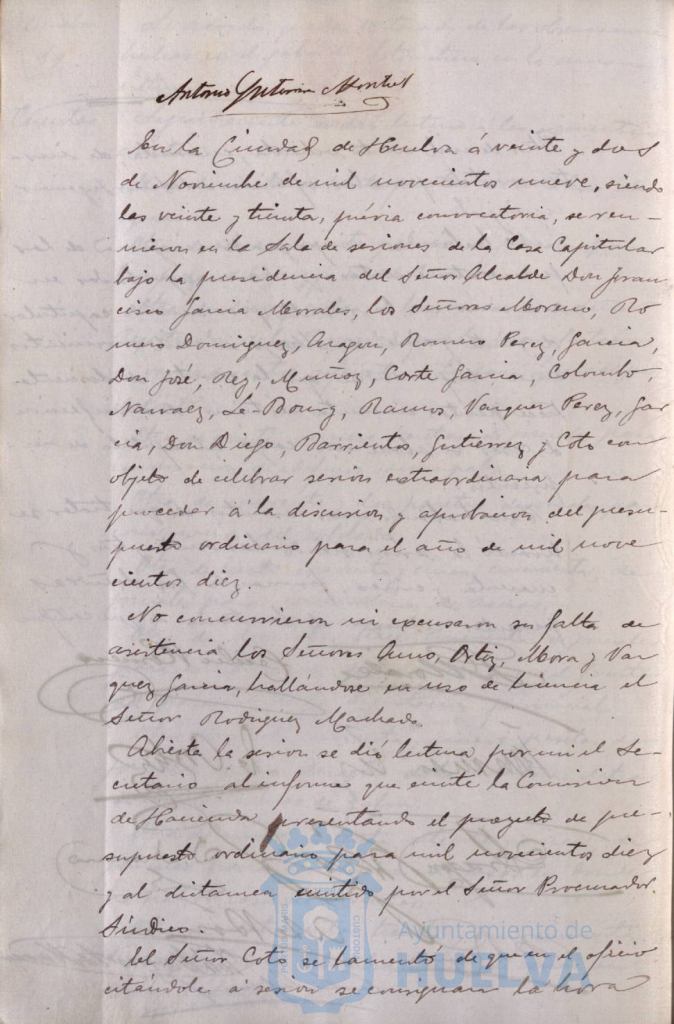 Antonio Gutierrez Montiel
En la Ciudad de Huelva á veinte y dos
de Noviembre de mil novecientos nueve, siendo
las veinte y treinta, prévia convocatoria, se reu-
nieron en la Sala de sesiones de la Casa Capitular
bajo la presidencia del Señor Alcalde Don Fran
cisco Garcia Morales, los Señores Moreno, Ro
mero Dominguez, Aragon, Romero Perez, Garcia,
Don José, Rey, Muñoz, Corte Garcia, Colombo,
Narvaez, Le-Bourg, Ramos, Vazquez Perez, Gar
cia, Don Diego, Barrientos, Gutiérrez y Coto con
objeto de celebrar sesion extraordinaria para
proceder á la discusion y aprobacion del presu-
puesto ordinario para el año de mil nove
cientos diez.
No concurrieron ni excusaron su falta de
asistencia los Señores Ortiz, Mora y Vaz
quez Garcia, hallándose en uso de licencia el
Señor Rodriguez Machado.
Abierta la sesion se dió lectura por mi el Se-
cretario al informe que emite la Comision
de Hacienda presentando el proyecto de pre-
supuesto ordinario para mil novecientos diez
y al dictamen emitido por el Señor Procurador
Síndico.
El Señor Coto se lamentó de que en el oficio
citándole á sesion se consignara la hora
Ayuntamiento de
HUELVA